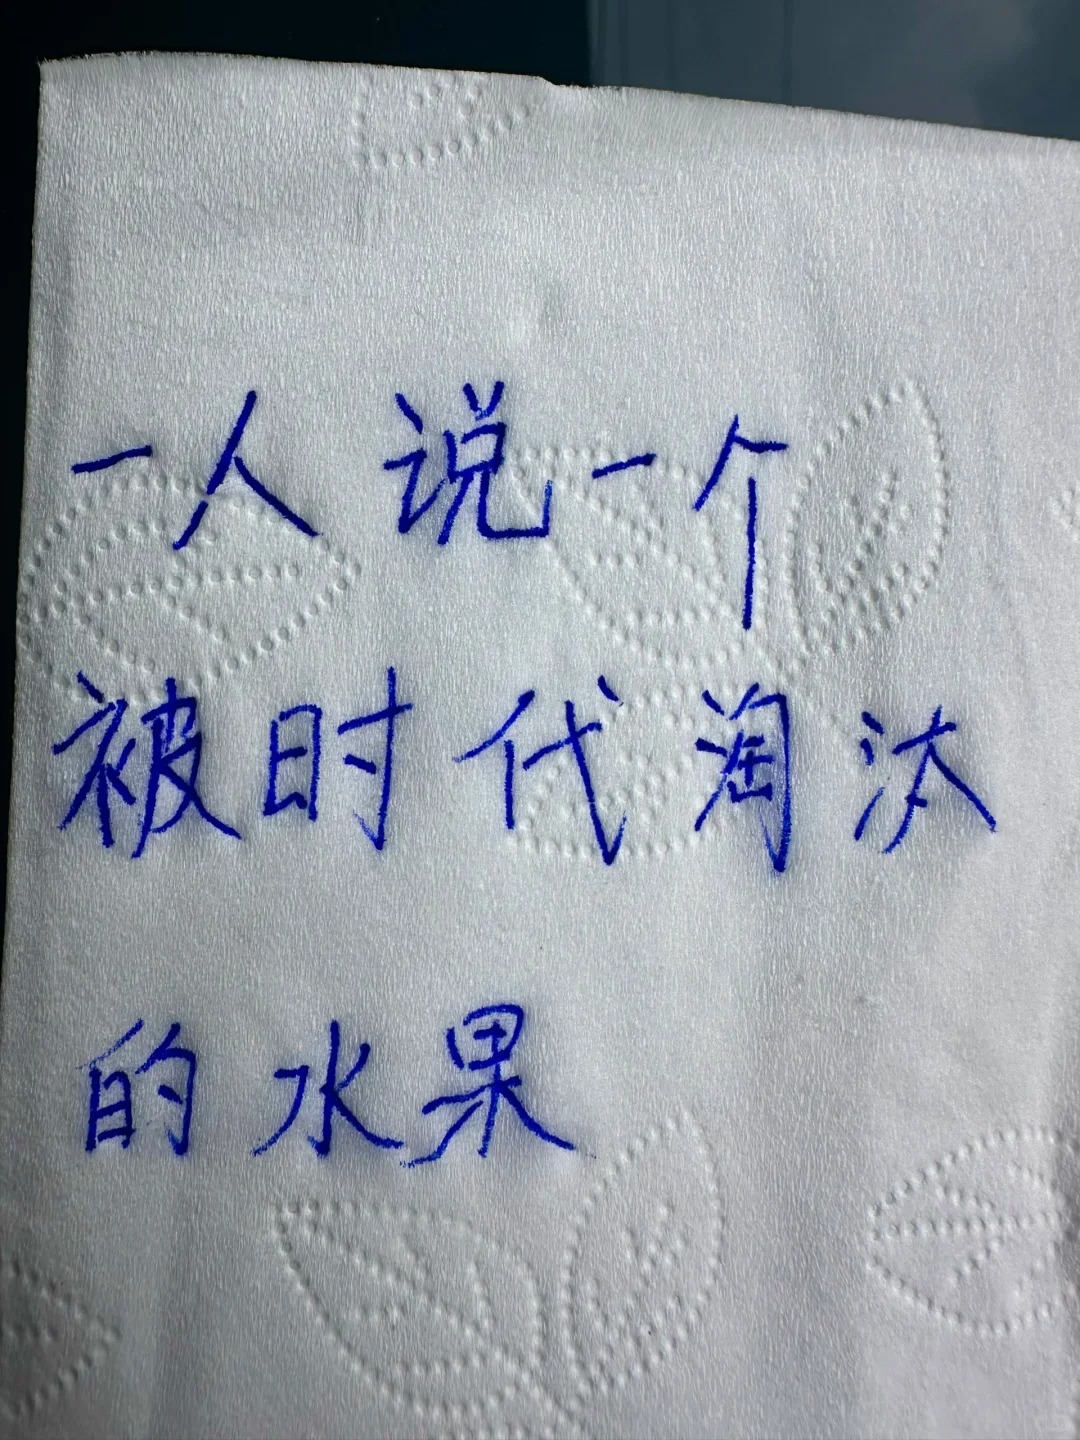 一人说一个
被时代淘汰
的水果